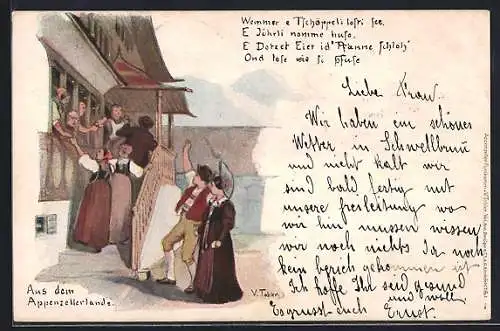 Wemmer e Tschöppeli losri see,
E Jöhrli nomme huse,
E Dotzet Eier id' Pfanne schloh'
Ond lose wie si pfuse
Liebe Frau.
Wir haben ein schönes
Wetter in Schwellbrun
und nicht kalt wir
sind bald fertig mit
unsere freileitung wo
wir hin müssen wissen
wir noch nichts da noch
kein bericht gekommen ist
Ich hoffe Ihr seid gesund
und woll
Es grusst euch Ernst.
Aus dem
Appenzellerlande.
V. Tobler